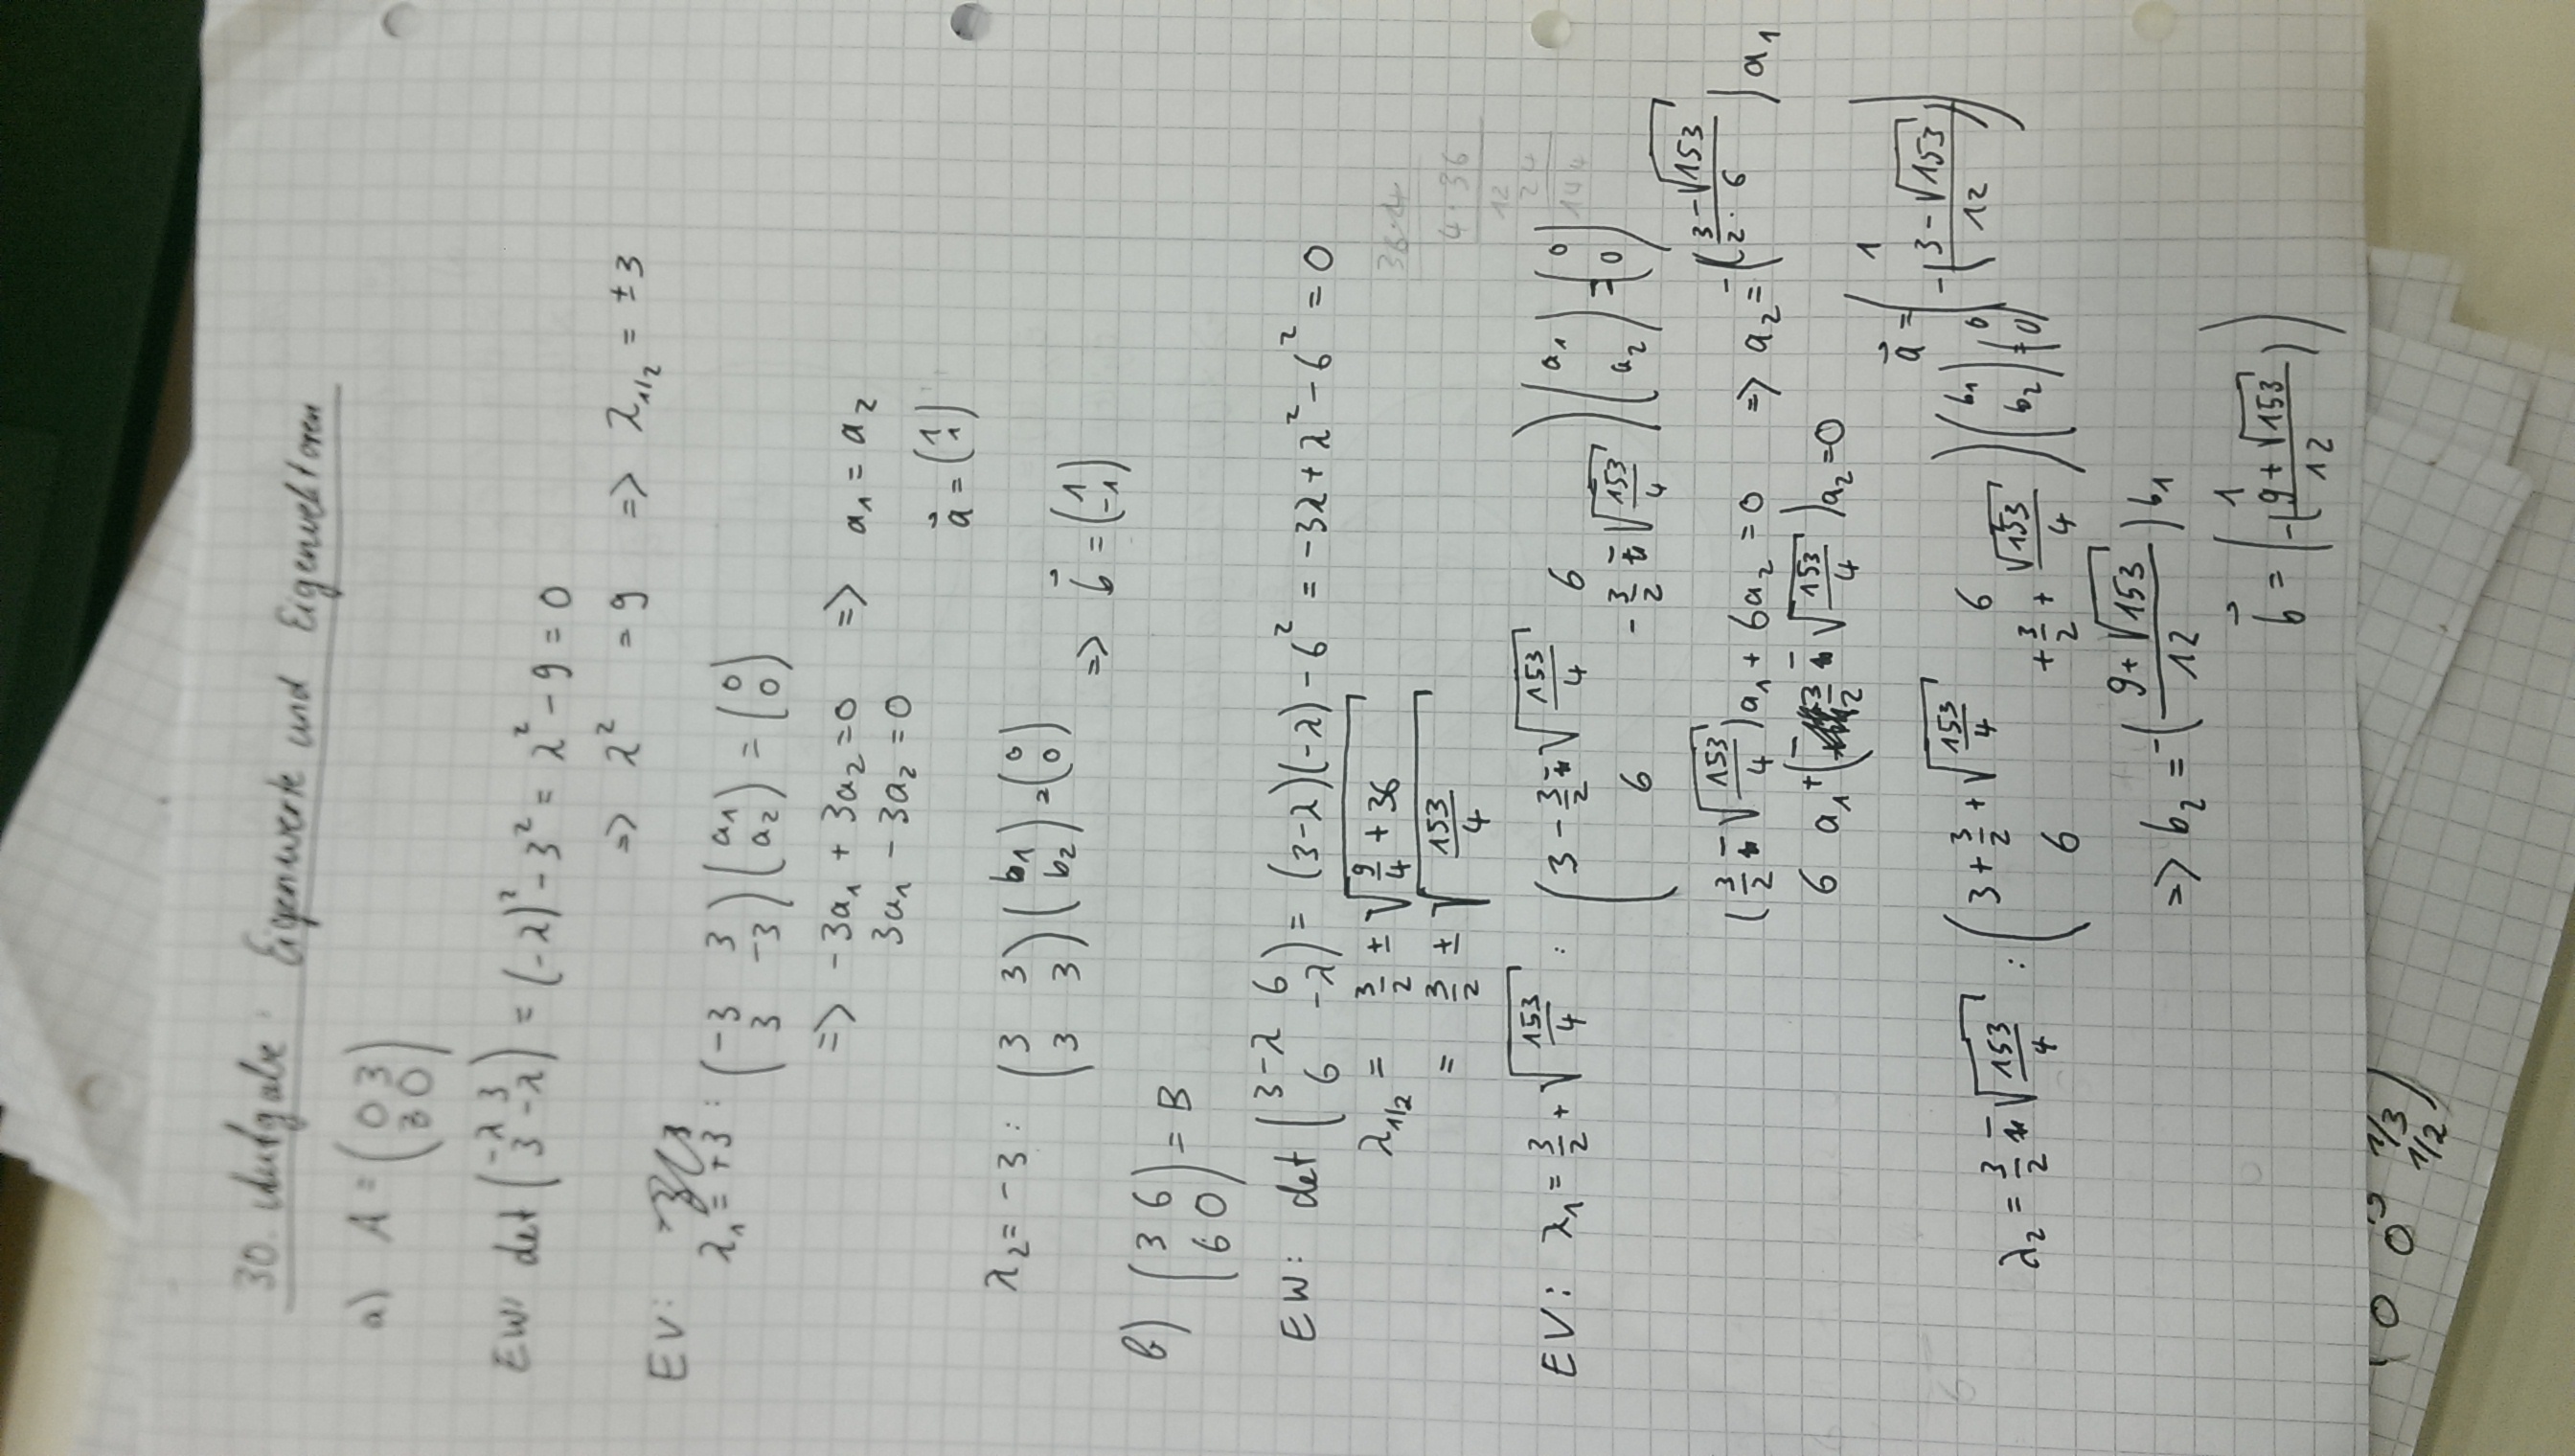 30. Aufgabe: Eigenwerte und Eigenvektoren
a) A = (0 3
3 0)
EW: det (-λ 3
3 -λ) = (-λ)² - 3² = λ² - 9 = 0
=> λ² = 9 => λ₁/₂ = ±3
EV:
λ₁ = +3 : (-3 3
3 -3) (a₁
a₂) = (0
0)
=> -3a₁ + 3a₂ = 0 => a₁ = a₂
3a₁ - 3a₂ = 0 a⃗ = (1
1)
λ₂ = -3 : (3 3
3 3) (b₁
b₂) = (0
0)
=> b⃗ = (1
-1)
b) (3 6
6 0) = B
EW: det (3-λ 6
6 -λ) = (3-λ)(-λ) - 6² = -3λ + λ² - 6² = 0
λ₁/₂ = 3/2 ± √(9/4 + 36)
= 3/2 ± √(153/4)
36·4
4·36
12
24
144
EV: λ₁ = 3/2 + √(153/4) : (3 - 3/2 - √(153/4) 6
6 -3/2 - √(153/4)) (a₁
a₂) = (0
0)
(3/2 - √(153/4)) a₁ + 6a₂ = 0 => a₂ = -((3 - √153)/(2·6)) a₁
6 a₁ + (-3/2 - √(153/4)) a₂ = 0
a⃗ = (1
-((3 - √153)/12))
λ₂ = 3/2 - √(153/4) : (3 + 3/2 + √(153/4) 6
6 +3/2 + √(153/4)) (b₁
b₂) = (0
0)
=> b₂ = -((9 + √153)/12) b₁
b⃗ = (1
-((9 + √153)/12))
0 0 1/3
1/2)